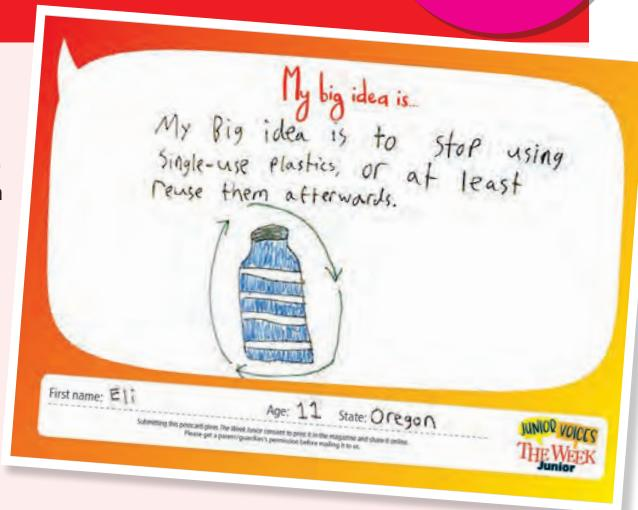 My big idea is...
My Big idea is to stop using
single-use plastics, or at least
reuse them afterwards.
First name: Eli
Age: 11 State: Oregon
Submitting this postcard gives The Week Junior consent to print it in the magazine and share it online.
Please get a parent/guardian's permission before mailing it to us.
JUNIOR VOICES
THE WEEK
Junior